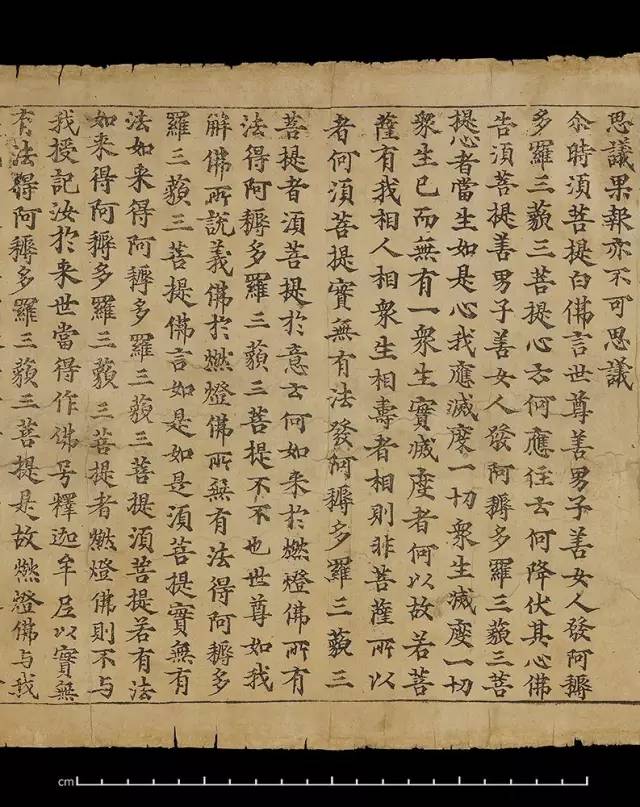 思議果報亦不可思議
尒時須菩提白佛言世尊善男子善女人發阿耨
多羅三藐三菩提心云何應住云何降伏其心佛
告須菩提善男子善女人發阿耨多羅三藐三菩
提心者當生如是心我應滅度一切衆生滅度一切
衆生已而無有一衆生實滅度者何以故若菩
薩有我相人相衆生相壽者相則非菩薩所以
者何須菩提實無有法發阿耨多羅三藐三
菩提者須菩提於意云何如来於燃燈佛所有
法得阿耨多羅三藐三菩提不不也世尊如我
解佛所說義佛於燃燈佛所無有法得阿耨多
羅三藐三菩提佛言如是如是須菩提實無有
法如来得阿耨多羅三藐三菩提須菩提若有法
如来得阿耨多羅三藐三菩提者燃燈佛則不與
我授記汝於来世當得作佛号釋迦牟尼以實無
有法得阿耨多羅三藐三菩提是故燃燈佛與我
cm